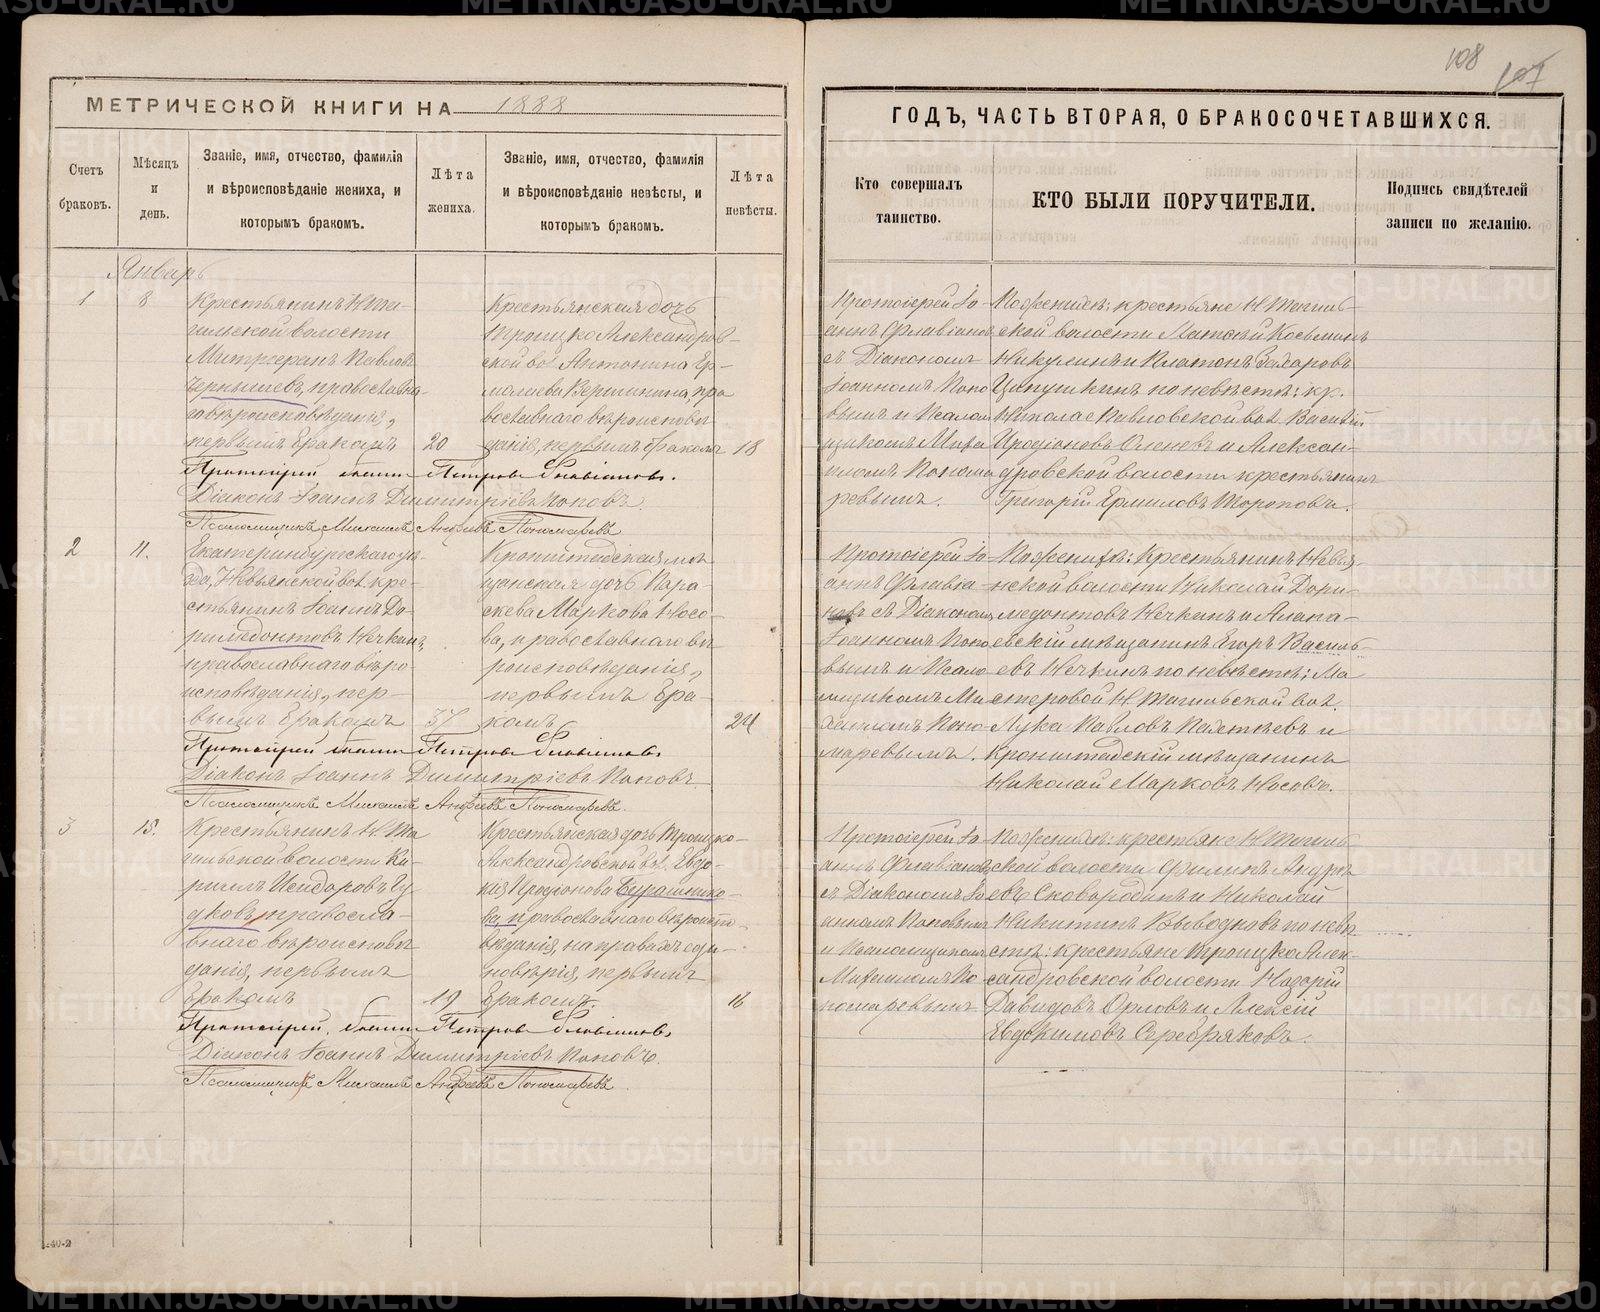 108
107
МЕТРИЧЕСКОЙ КНИГИ НА 1888
ГОДЪ, ЧАСТЬ ВТОРАЯ, О БРАКОСОЧЕТАВШИХСЯ.
Счетъ
браковъ.
Мѣсяцъ
и
день.
Званіе, имя, отчество, фамилія
и вѣроисповѣданіе жениха, и
которымъ бракомъ.
Лѣта
жениха.
Званіе, имя, отчество, фамилія
и вѣроисповѣданіе невѣсты, и
которымъ бракомъ.
Лѣта
невѣсты.
Кто совершалъ
таинство.
КТО БЫЛИ ПОРУЧИТЕЛИ.
Подпись свидѣтелей
записи по желанію.
Январь
1
8
Крестьянинъ Н Та-
гильской волости
Митрофанъ Павловъ
Чернышевъ, православна-
го вѣроисповѣданія,
первымъ бракомъ
20
Крестьянская дочь
Троицко Александров-
ской вол. Антонина Ер-
молаева Вершинина, пра
вославнаго вѣроисповѣ
данія, первымъ бракомъ
18
Протоіерей Іо-
аннъ Флавіановъ
съ Діакономъ
Іоанномъ Попо
вымъ и Псалом
щикомъ Миха
иломъ Понома
ревымъ.
По женихѣ: крестьяне Н Тагиль-
ской волости
Никулинъ и Платонъ Захаровъ
Цапушкинъ по невѣстѣ: кр.
Николае Павловской вол. Василій
Иродіоновъ Оленевъ и Алексан-
дровской волости крестьянинъ
Григорій Ермиловъ Тороповъ.
Протоіерей Іоаннъ Петровъ Флавіановъ.
Діаконъ Іоаннъ Димитріевъ Поповъ.
Псаломщикъ Михаилъ Андреевъ Пономаревъ
2
11.
Екатеринбургскаго уѣ-
зда, Невьянской вол. кре-
стьянинъ Іоаннъ До-
римедонтовъ Нечкинъ,
православнаго вѣро
исповѣданія, пер-
вымъ бракомъ
37
Кронштадская мѣ
щанская дочь Пара-
скева Маркова Носо-
ва, православнаго вѣ
роисповѣданія,
первымъ бра-
комъ
24
Протоіерей Іо-
аннъ Флавіа-
новъ съ Діакономъ
Іоанномъ Попо
вымъ и Псало
мщикомъ Ми
хаиломъ Поно
маревымъ.
По женихѣ: Крестьянинъ Невья-
нской волости Николай Дори-
медонтовъ Нечкинъ и Алапа-
евскій мѣщанинъ Егоръ Василь-
евъ Нечкинъ по невѣстѣ: Ма
стеровой Н Тагильской вол.
Лука Павловъ Палткевъ и
Кронштадскій мѣщанинъ
Николай Марковъ Носовъ.
Протоіерей Іоаннъ Петровъ Флавіановъ.
Діаконъ Іоаннъ Димитріевъ Поповъ
Псаломщикъ Михаилъ Андреевъ Пономаревъ.
3
15.
Крестьянинъ Н Та
гильской волости Ки-
риллъ Исидоровъ Гу
дковъ, правосла-
внаго вѣроисповѣ
данія, первымъ
бракомъ
19
Крестьянская дочь Троицко-
Александровской вол. Евдо-
кія Иродіонова Бурашнико-
ва, православнаго вѣроиспо-
вѣданія, на правахъ еди-
новѣрія, первымъ
бракомъ.
16
Протоіерей Іо-
аннъ Флавіановъ
съ Діакономъ Іо
анномъ Поповымъ
и Псаломщикомъ
Михаиломъ По
номаревымъ
По женихѣ: крестьяне Н Тагиль-
ской волости Филиппъ Андре
евъ Сковородинъ и Николай
Никитинъ Выводновъ по невѣ-
стѣ: крестьяне Троицко Алек-
сандровской волости Назарій
Давидовъ Орловъ и Алексій
Евдокимовъ Серебряковъ.
Протоіерей Іоаннъ Петровъ Флавіановъ.
Діаконъ Іоаннъ Димитріевъ Поповъ.
Псаломщикъ Михаилъ Андреевъ Пономаревъ.
METRIKI.GASO-URAL.RU